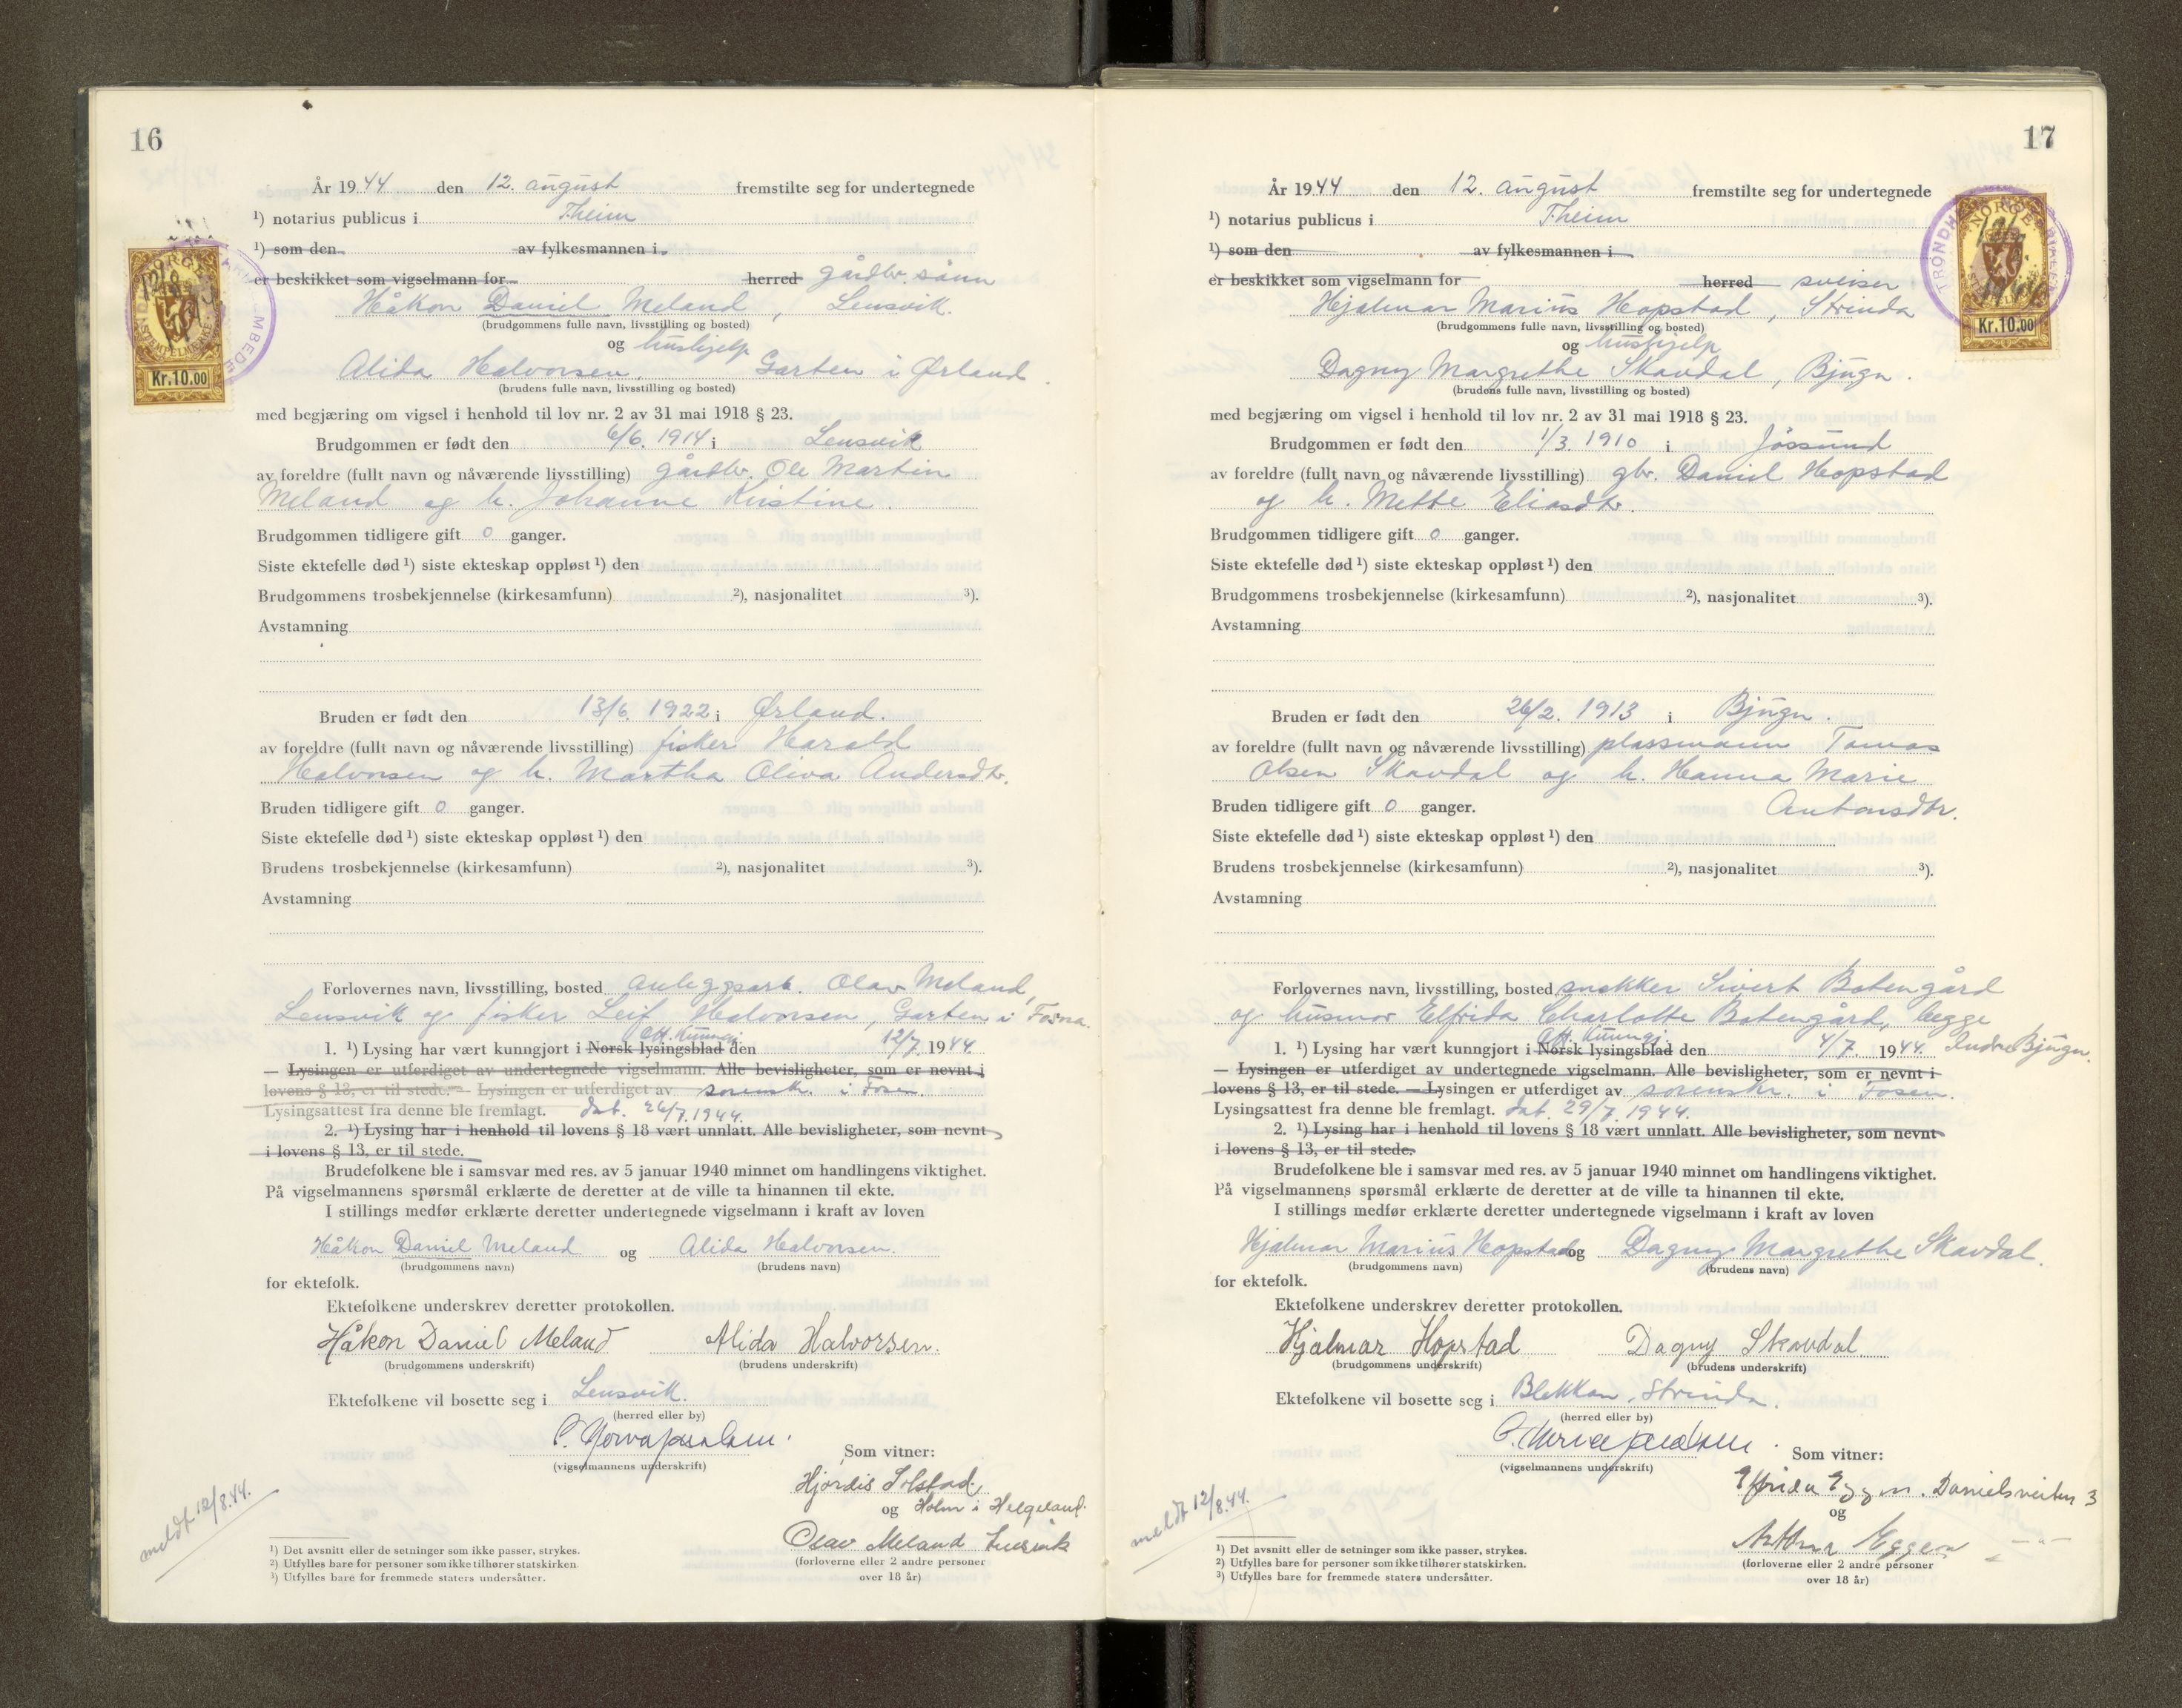 16
År 1944 den 12. august fremstilte seg for undertegnede
¹) notarius publicus i T.heim
¹) som den av fylkesmannen i
er beskikket som vigselmann for herred gårdbr. sønn
Håkon Daniel Meland, Lensvik.
(brudgommens fulle navn, livsstilling og bosted)
og hushjelp
Alida Halvorsen, Garten i Ørland.
(brudens fulle navn, livsstilling og bosted)
med begjæring om vigsel i henhold til lov nr. 2 av 31 mai 1918 § 23.
Brudgommen er født den 6/6. 1914 i Lensvik
av foreldre (fullt navn og nåværende livsstilling) gårdbr. Ole Martin
Meland og h. Johanne Kirstine.
Brudgommen tidligere gift 0 ganger.
Siste ektefelle død ¹) siste ekteskap oppløst ¹) den
Brudgommens trosbekjennelse (kirkesamfunn) ²), nasjonalitet ³).
Avstamning
Bruden er født den 13/6. 1922 i Ørland.
av foreldre (fullt navn og nåværende livsstilling) fisker Harald
Halvorsen og h. Martha Oliva Andersdtr.
Bruden tidligere gift 0 ganger.
Siste ektefelle død ¹) siste ekteskap oppløst ¹) den
Brudens trosbekjennelse (kirkesamfunn) ²), nasjonalitet ³).
Avstamning
Forlovernes navn, livsstilling, bosted anleggsarb. Olav Meland,
Lensvik og fisker Leif Halvorsen, Garten i Fosna.
Off. Kunngj.
1. ¹) Lysing har vært kunngjort i Norsk lysingsblad den 12/7. 1944.
— Lysingen er utferdiget av undertegnede vigselmann. Alle bevisligheter, som er nevnt i
lovens § 13, er til stede. — Lysingen er utferdiget av sorenskr. i Fosen.
Lysingsattest fra denne ble fremlagt. dat. 26/7. 1944.
2. ¹) Lysing har i henhold til lovens § 18 vært unnlatt. Alle bevisligheter, som nevnt
i lovens § 13, er til stede.
Brudefolkene ble i samsvar med res. av 5 januar 1940 minnet om handlingens viktighet.
På vigselmannens spørsmål erklærte de deretter at de ville ta hinannen til ekte.
I stillings medfør erklærte deretter undertegnede vigselmann i kraft av loven
Håkon Daniel Meland og Alida Halvorsen.
(brudgommens navn) (brudens navn)
for ektefolk.
Ektefolkene underskrev deretter protokollen.
Håkon Daniel Meland Alida Halvorsen.
(brudgommens underskrift) (brudens underskrift)
Ektefolkene vil bosette seg i Lensvik.
(herred eller by)
(vigselmannens underskrift)
Som vitner:
Hjördis Solstad.
og Holm i Helgeland.
Olav Meland Lensvik
(forloverne eller 2 andre personer
over 18 år)
meldt 12/8.44.
¹) Det avsnitt eller de setninger som ikke passer, strykes.
²) Utfylles bare for personer som ikke tilhører statskirken.
³) Utfylles bare for fremmede staters undersåtter.
NORGE
Kr.10.00
17
År 1944 den 12. august fremstilte seg for undertegnede
¹) notarius publicus i T.heim
¹) som den av fylkesmannen i
er beskikket som vigselmann for herred sveiser
Hjalmar Marius Hopstad, Strinda
(brudgommens fulle navn, livsstilling og bosted)
og hushjelp
Dagny Margrethe Skavdal, Bjugn.
(brudens fulle navn, livsstilling og bosted)
med begjæring om vigsel i henhold til lov nr. 2 av 31 mai 1918 § 23.
Brudgommen er født den 1/3. 1910 i Jössund
av foreldre (fullt navn og nåværende livsstilling) gbr. Daniel Hopstad
og h. Mette Eliasdtr.
Brudgommen tidligere gift 0 ganger.
Siste ektefelle død ¹) siste ekteskap oppløst ¹) den
Brudgommens trosbekjennelse (kirkesamfunn) ²), nasjonalitet ³).
Avstamning
Bruden er født den 26/2. 1913 i Bjugn.
av foreldre (fullt navn og nåværende livsstilling) plassmann Tomas
Olsen Skavdal og h. Hanna Marie
Bruden tidligere gift 0 ganger. Antonsdtr.
Siste ektefelle død ¹) siste ekteskap oppløst ¹) den
Brudens trosbekjennelse (kirkesamfunn) ²), nasjonalitet ³).
Avstamning
Forlovernes navn, livsstilling, bosted snekker Sivert Botengård
og husmor Elfrida Charlotte Botengård, begge
Off. Kunngj.
1. ¹) Lysing har vært kunngjort i Norsk lysingsblad den 4/7. 1944. Indre Bjugn.
— Lysingen er utferdiget av undertegnede vigselmann. Alle bevisligheter, som er nevnt i
lovens § 13, er til stede. — Lysingen er utferdiget av sorenskr. i Fosen.
Lysingsattest fra denne ble fremlagt. dat. 29/7. 1944.
2. ¹) Lysing har i henhold til lovens § 18 vært unnlatt. Alle bevisligheter, som nevnt
i lovens § 13, er til stede.
Brudefolkene ble i samsvar med res. av 5 januar 1940 minnet om handlingens viktighet.
På vigselmannens spørsmål erklærte de deretter at de ville ta hinannen til ekte.
I stillings medfør erklærte deretter undertegnede vigselmann i kraft av loven
Hjalmar Marius Hopstad og Dagny Margrethe Skavdal.
(brudgommens navn) (brudens navn)
for ektefolk.
Ektefolkene underskrev deretter protokollen.
Hjalmar Hopstad Dagny Skavdal
(brudgommens underskrift) (brudens underskrift)
Ektefolkene vil bosette seg i Blekkan, Strinda.
(herred eller by)
(vigselmannens underskrift)
Som vitner:
Elfrida Eggen. Danielsveiten 3
og
Arthur Eggen — " —
(forloverne eller 2 andre personer
over 18 år)
meldt 12/8.44.
¹) Det avsnitt eller de setninger som ikke passer, strykes.
²) Utfylles bare for personer som ikke tilhører statskirken.
³) Utfylles bare for fremmede staters undersåtter.
NORGE
Kr.10.00